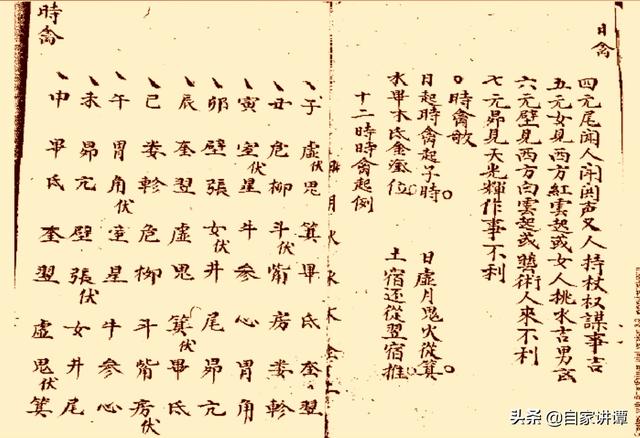 日禽
四元尾闹人闹声又人持杖权謀事吉
五元女見西方紅雲起或女人挑水吉男
六元壁見西方白雲起或藝術人來不利
七元昴見天光輝作事不利
時禽
日起時禽起子時 日虛月鬼火從箕
水畢木氐金奎位 土宿还從翌宿推
十二時時禽起例
月火水木金土
子虛鬼箕畢氐奎翌
丑危柳斗伏觜房婁軫
寅室伏星牛參心胃角
卯壁張女伏井尾昴亢
辰奎翌虛鬼箕伏畢氐
巳婁軫危柳斗觜房伏
午胃角伏室星牛參心
未昴亢壁張伏女井尾
申畢氐奎翌虛鬼伏箕
時禽
头条 @自家讲谭